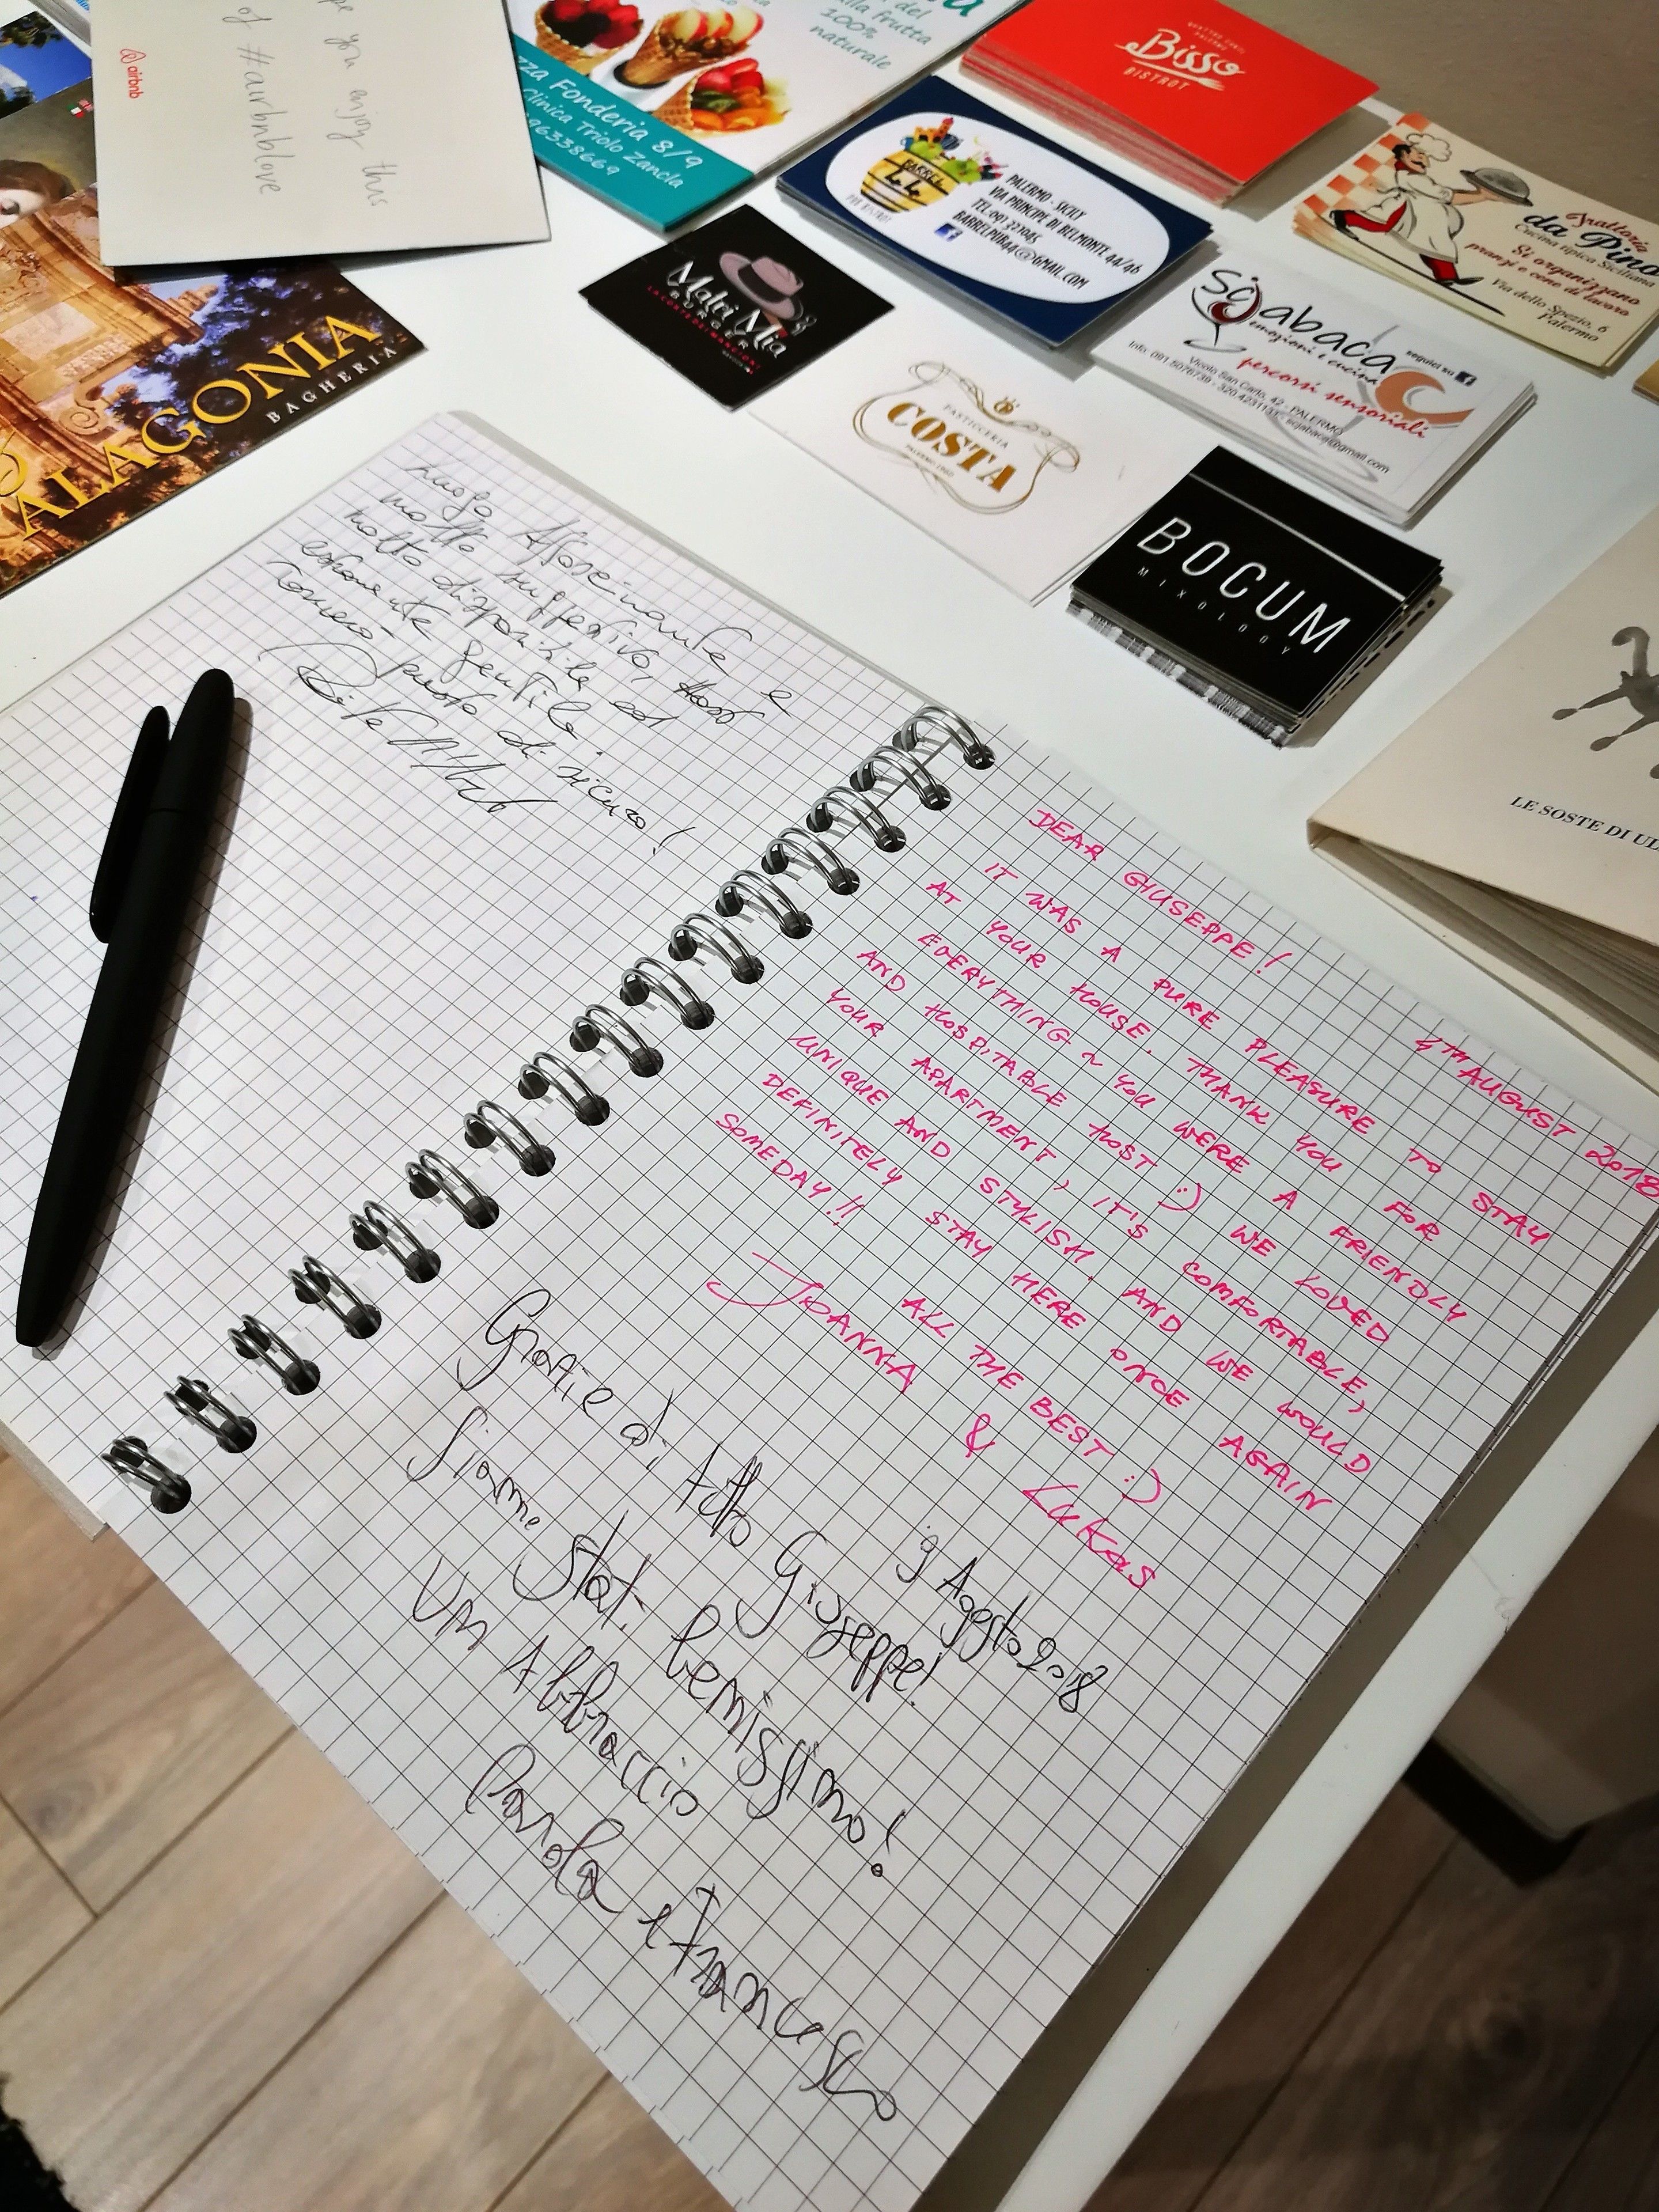 pe you enjoy this
of #airbnblove
airbnb
alla frutta
100%
naturale
zza Fonderia 8/9
Clinica Triolo Zancla
96338669
QUATTRO CANTI
PALERMO
Bisso
BISTROT
BARREL
44
PUB BISTROT
PALERMO - SICILY
VIA PRINCIPE DI BELMONTE 44/46
TEL.091 323045
BARRELPUB44@GMAIL.COM
Trattoria
da Pino
Cucina tipica Siciliana
Si organizzano
pranzi e cene di lavoro
Via dello Spezio, 6
Palermo
Matri Mia
BURGER
Sçiabaca
emozioni e cucina
percorsi sensoriali
seguici su
Vicolo San Carlo, 42 - PALERMO
Info: 091.5076736 - 320.4231133
sciabaca@gmail.com
PASTICCERIA
COSTA
PALERMO 1960
BOCUM
MIXOLOGY
ALAGONIA
BAGHERIA
LE SOSTE DI UL
luogo Affascinante e
molto suggestivo, Host
molto disponibile ed
estremamente gentile.
Tornerò presto di sicuro!
4TH AUGUST 2018
DEAR GIUSEPPE!
IT WAS A PURE PLEASURE TO STAY
AT YOUR HOUSE. THANK YOU FOR
EVERYTHING ~ YOU WERE A FRIENDLY
AND HOSPITABLE HOST :) WE LOVED
YOUR APARTMENT, IT'S COMFORTABLE,
UNIQUE AND STYLISH. AND WE WOULD
DEFINITELY STAY HERE ONCE AGAIN
SOMEDAY!!
ALL THE BEST :)
JOANNA & LUKAS
9 Agosto 2018
Grazie di tutto Giuseppe!
Siamo stati benissimo!
Un Abbraccio
Paola e Francesco